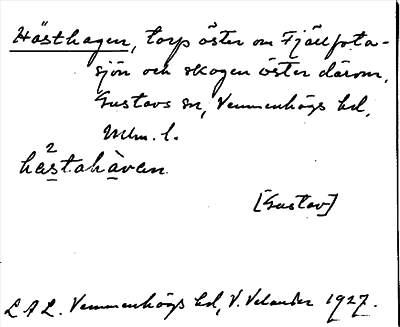 Hästhagen, torp öster om Fjällfota-
sjön och skogen öster därom,
Gustavs sn, Vemmenhögs hd,
Mlm. l.
2
hästahàven
[Gustav]
L A L. Vemmenhögs hd, V. Velander 1927.